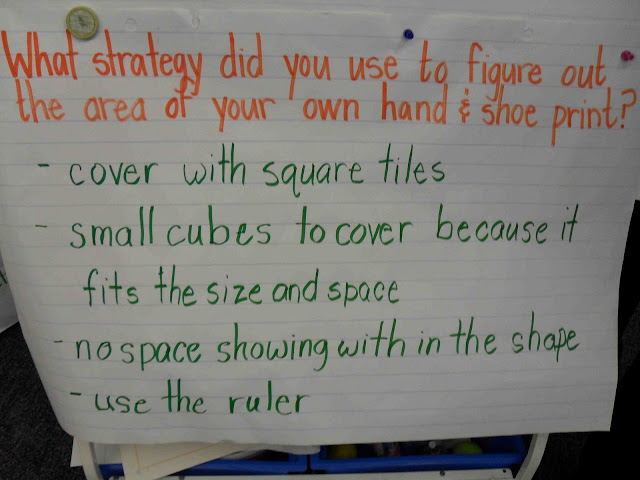 What strategy did you use to figure out
the area of your own hand & shoe print?
- cover with square tiles
- small cubes to cover because it
fits the size and space
- no space showing with in the shape
- use the ruler